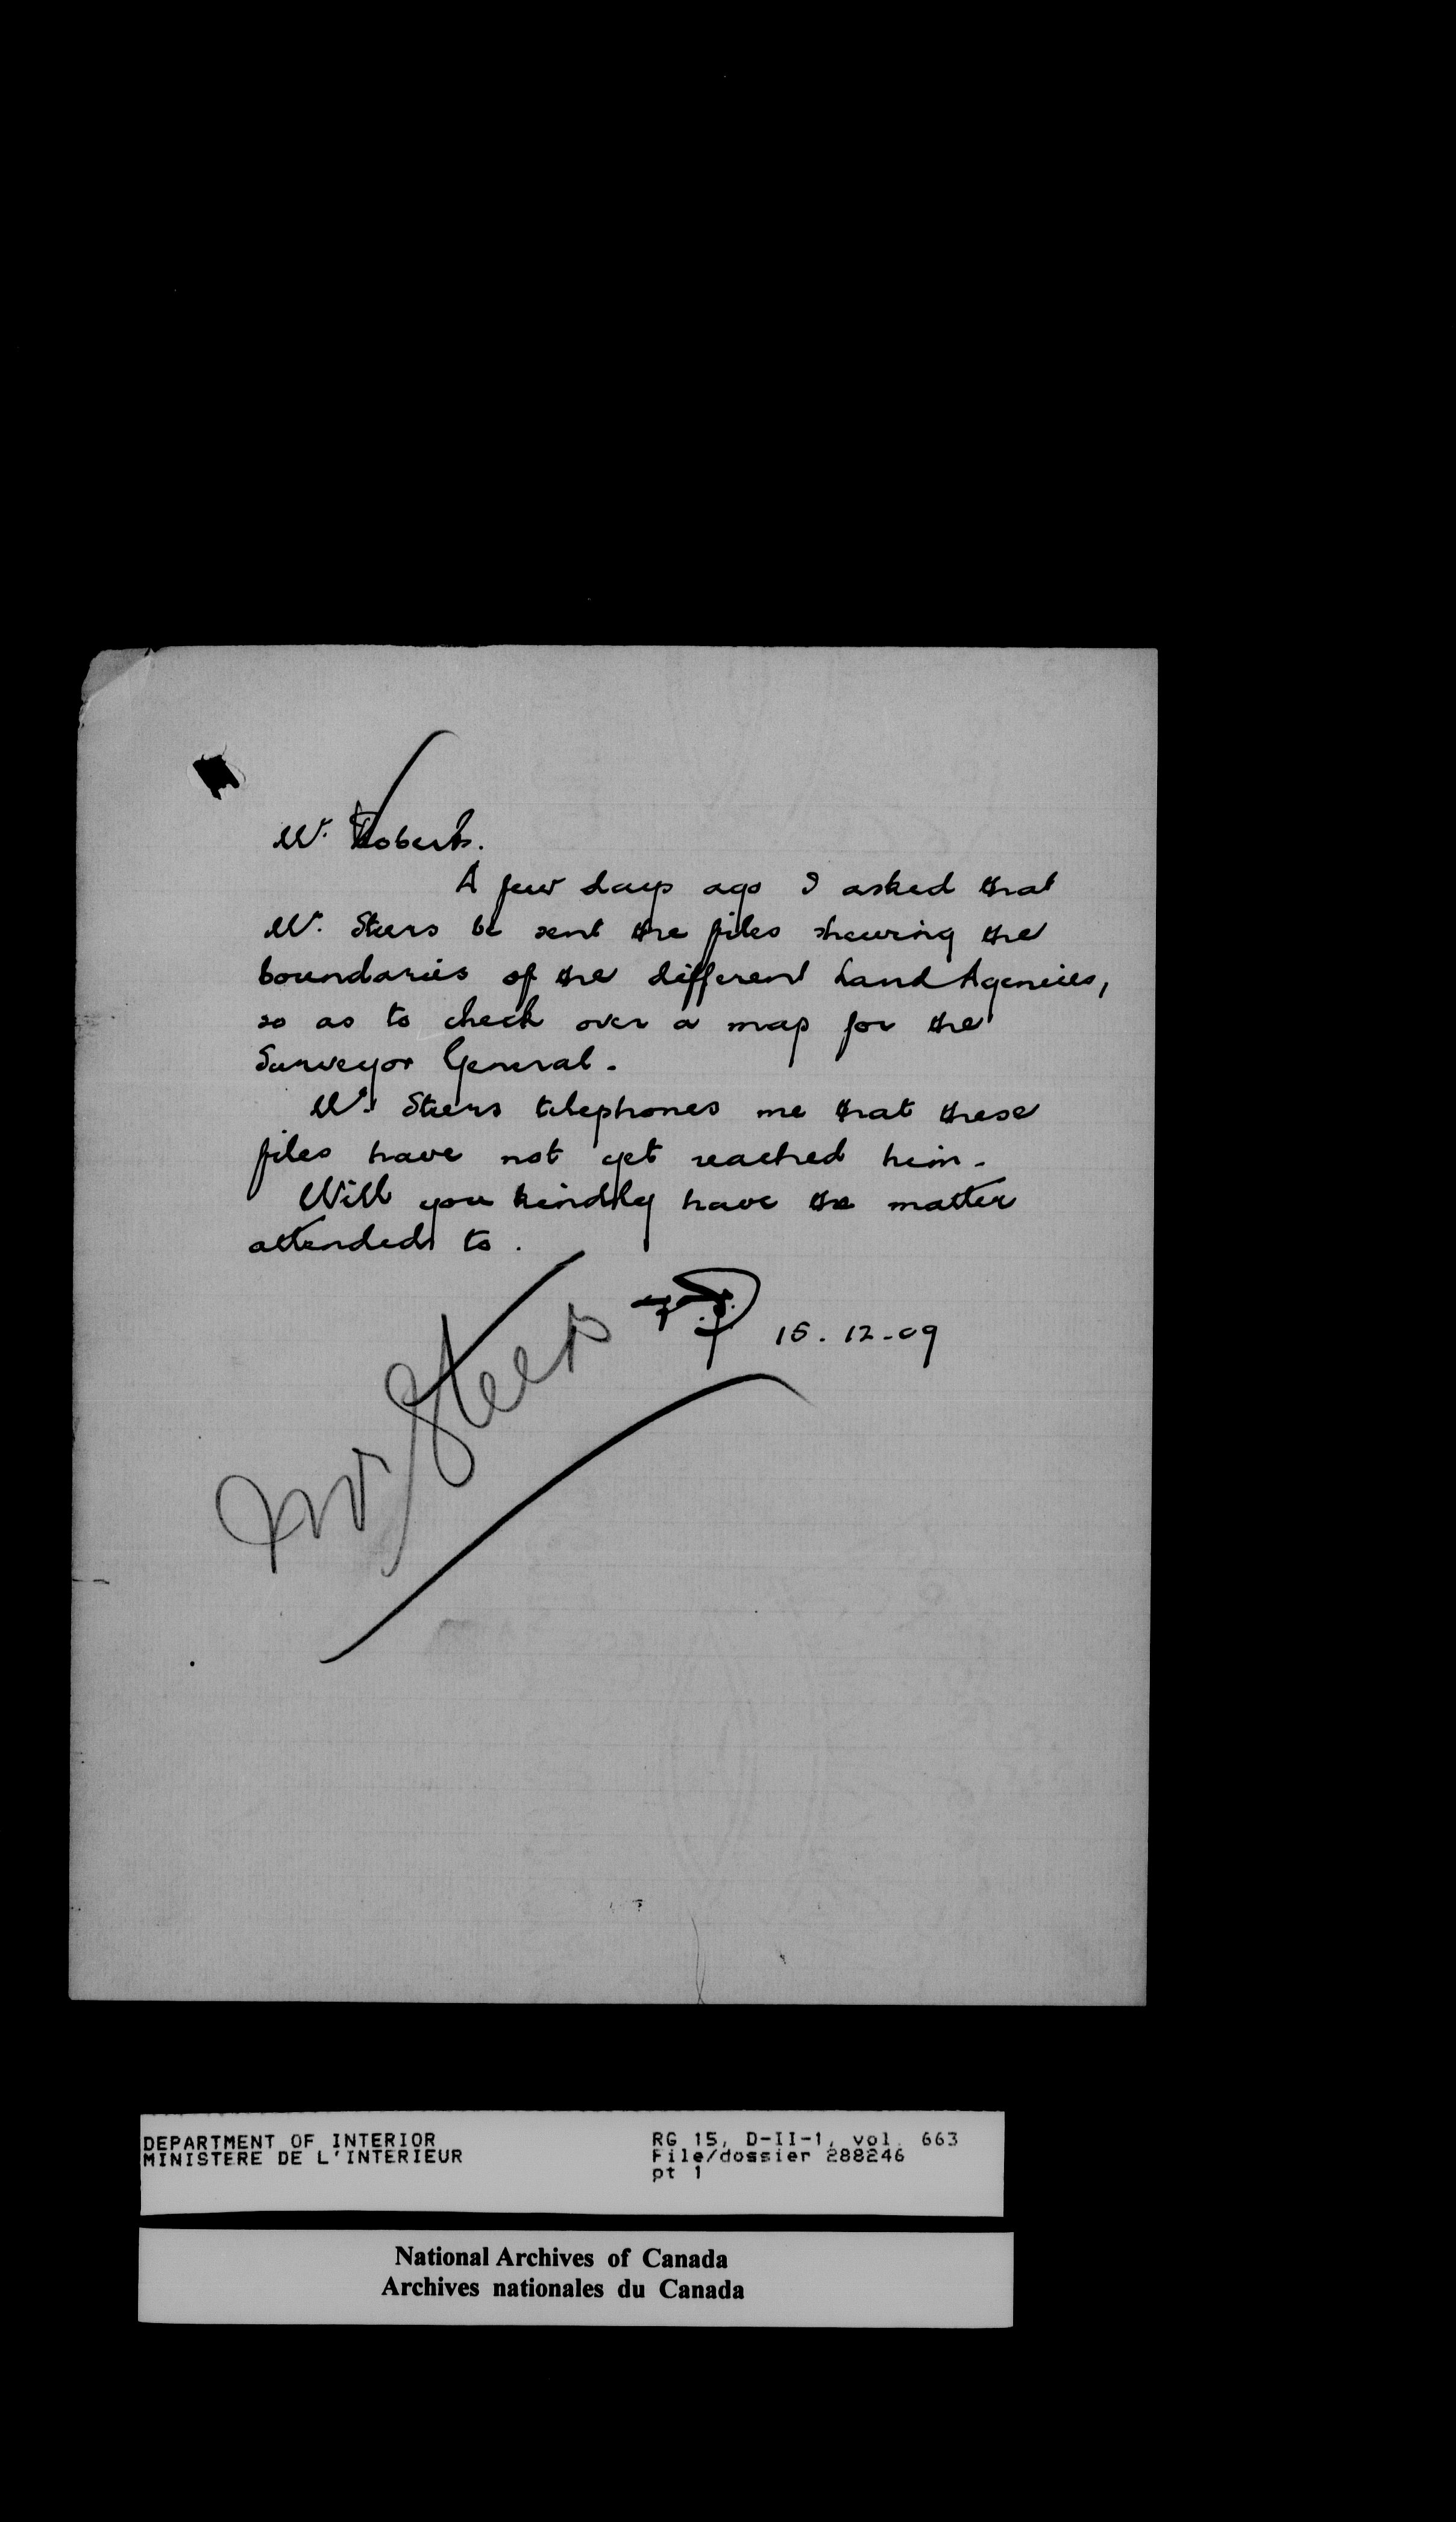 Mr. Roberts.
A few days ago I asked that
Mr. Steers be sent the files shewing the
boundaries of the different Land Agencies,
so as to check over a map for the
Surveyor General.
Mr. Steers telephones me that these
files have not yet reached him.
Will you kindly have the matter
attended to.
15.12-09
Mr Steers
DEPARTMENT OF INTERIOR
MINISTERE DE L'INTERIEUR
RG 15, D-II-1, vol. 663
File/dossier 288246
pt 1
National Archives of Canada
Archives nationales du Canada